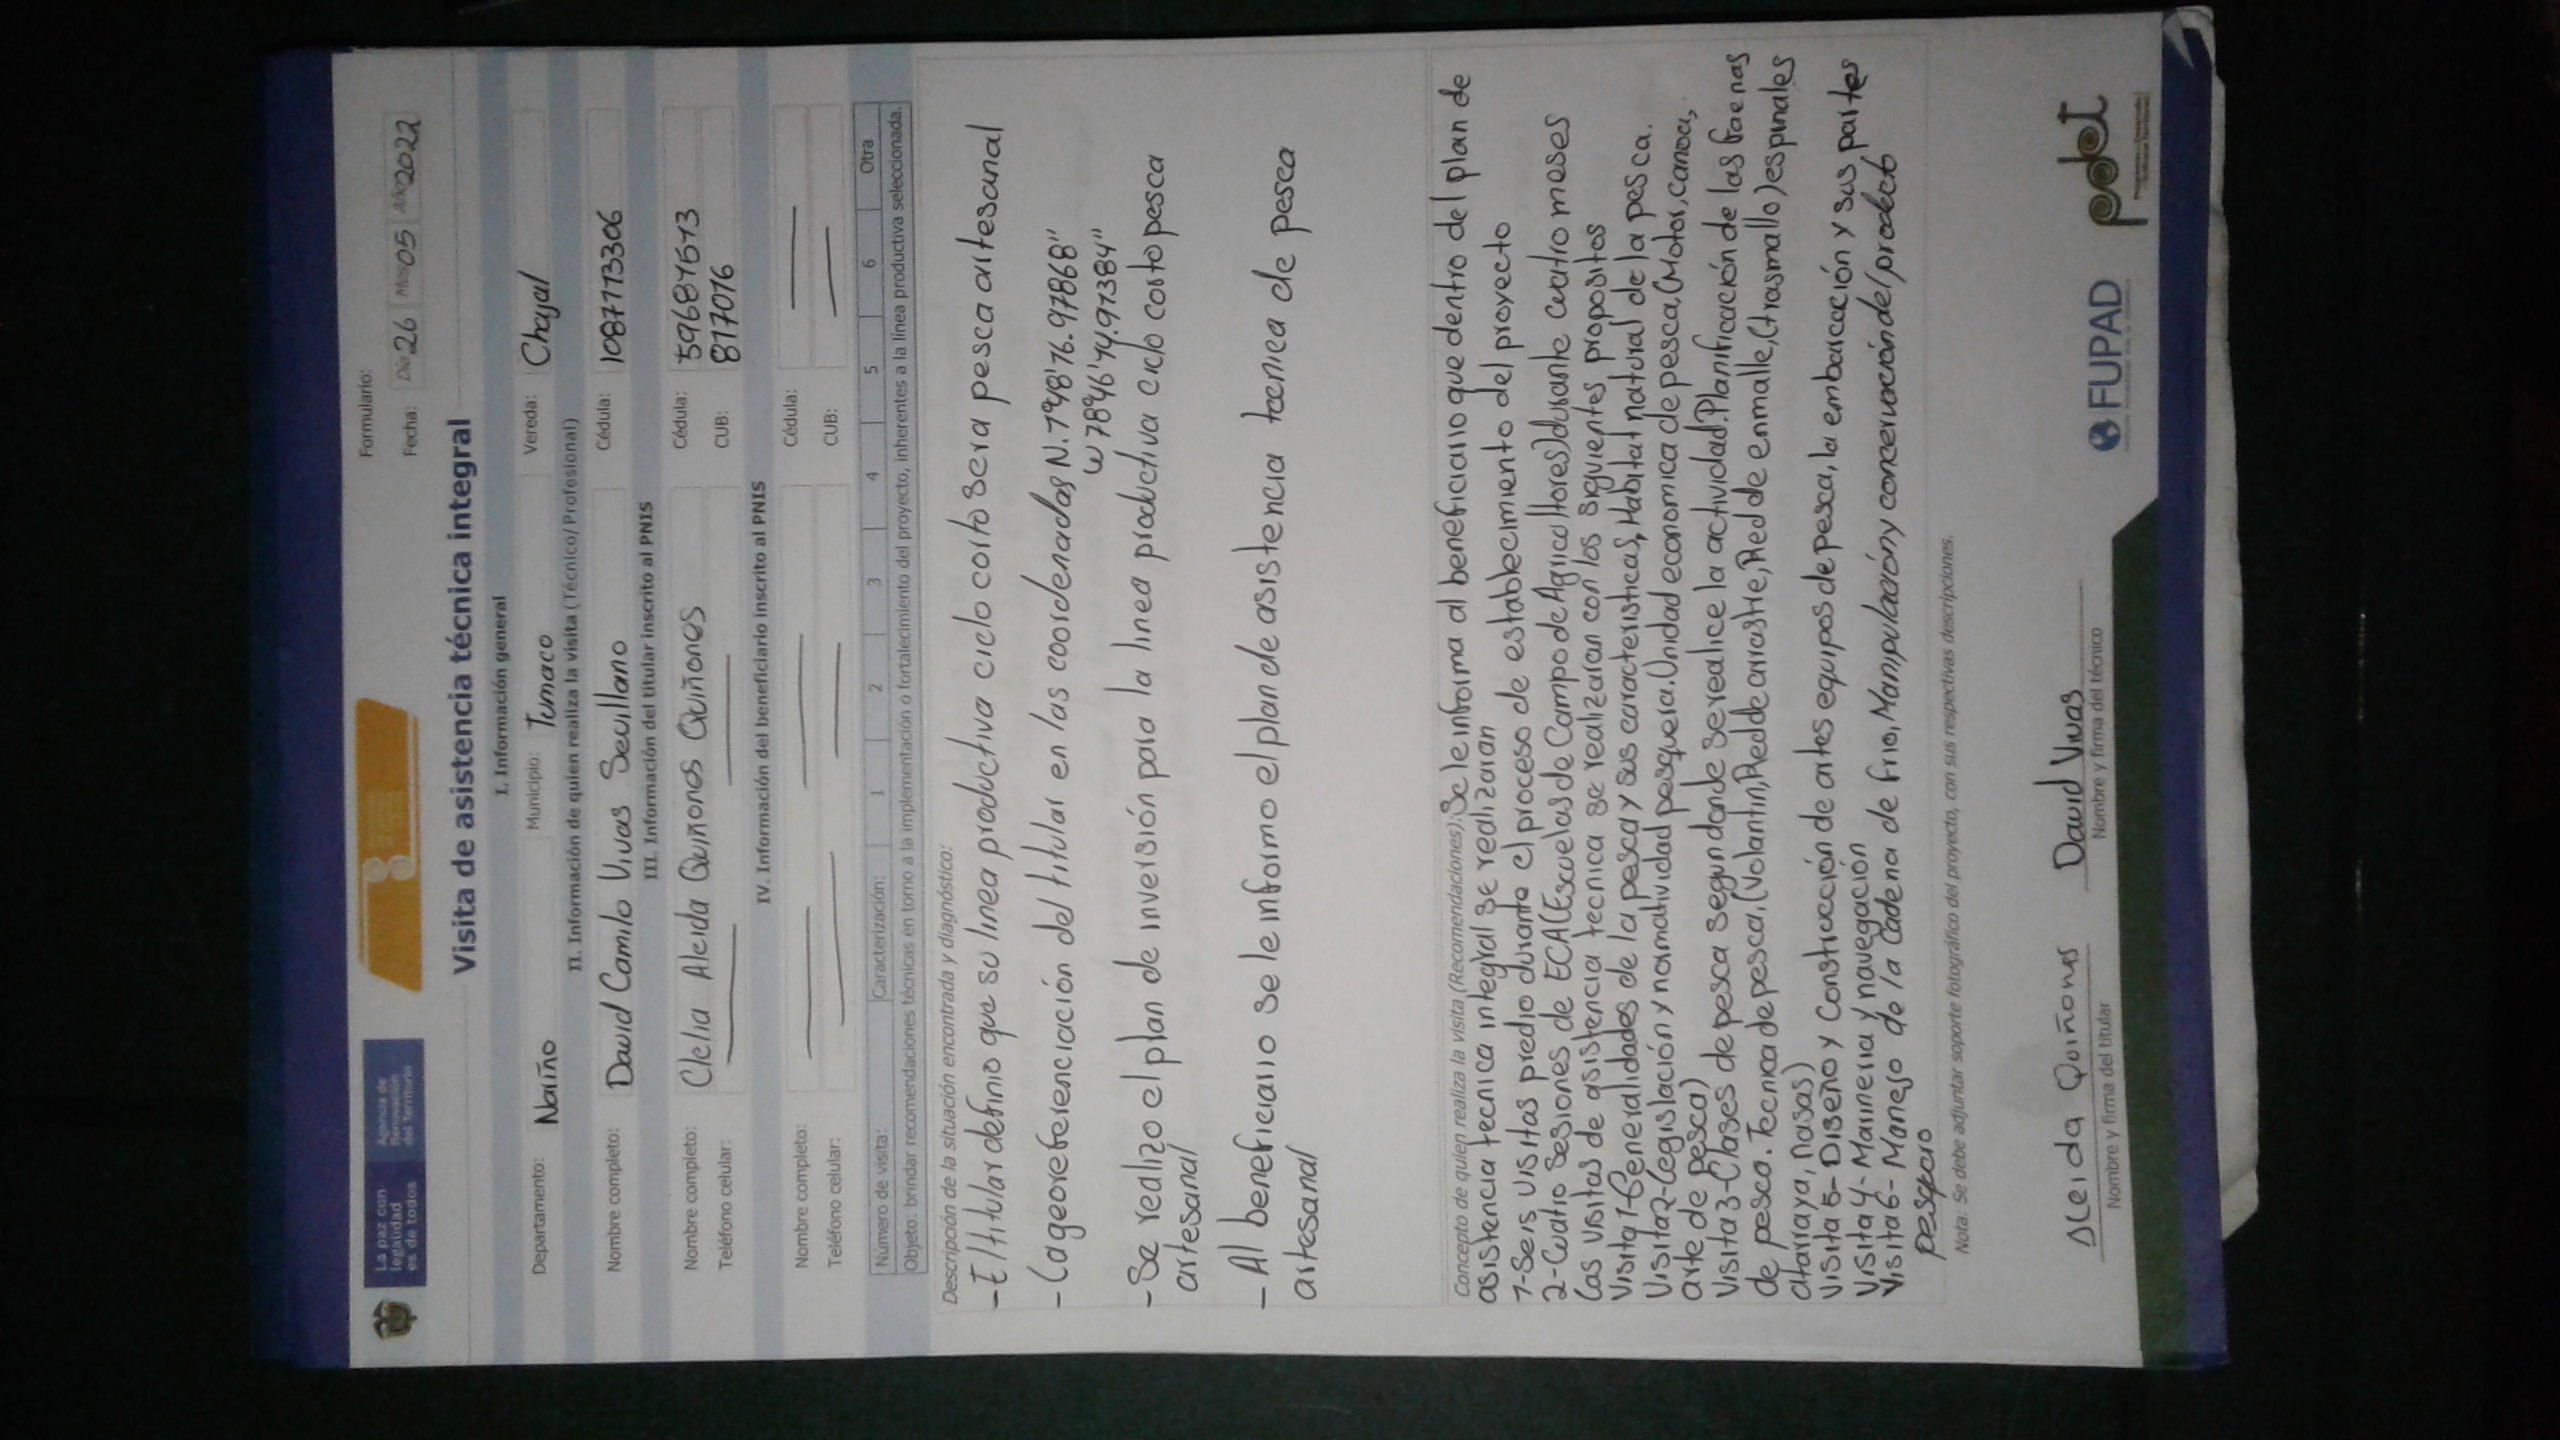 La paz con
legalidad
es de todos
Agencia de
Renovación
del Territorio
Formulario:
Fecha: Día 26 Mes 05 Año 2022
Visita de asistencia técnica integral
I. Información general
Departamento: Nariño Municipio: Tumaco Vereda: Chajal
II. Información de quien realiza la visita (Técnico/Profesional)
Nombre completo: David Camilo Vivas Sevillano Cédula: 1087773306
III. Información del titular inscrito al PNIS
Nombre completo: Clelia Aleida Quiñones Quiñones Cédula: 59687573
Teléfono celular: CUB: 817076
IV. Información del beneficiario inscrito al PNIS
Nombre completo: Cédula:
Teléfono celular: CUB:
Número de visita: Caracterización: 1 2 3 4 5 6 Otra
Objeto: brindar recomendaciones técnicas en torno a la implementación o fortalecimiento del proyecto, inherentes a la línea productiva seleccionada.
Descripción de la situación encontrada y diagnóstico:
- El titular definio que su linea productiva ciclo corto sera pesca artesanal
- La georeferenciación del titular en las coordenadas N. 7°48'76.97868"
W 78°46'74.97384"
- Se realizo el plan de inversión para la linea productiva ciclo corto pesca
artesanal
- Al beneficiario se le informo el plan de asistencia tecnica de pesca
artesanal
Concepto de quien realiza la visita (Recomendaciones): Se le informa al beneficiario que dentro del plan de
asistencia tecnica integral se realizaran
1-Seis visitas predio durante el proceso de establecimiento del proyecto
2-Cuatro Sesiones de ECA (Escuelas de Campo de Agricultores) durante cuatro meses
Las visitas de asistencia tecnica se realizaran con los siguientes propositos
Visita 1-Generalidades de la pesca y sus caracteristicas, Habitat natural de la pesca.
Visita 2-Legislación y normatividad pesquera. Unidad economica de pesca, (Motor, canoa,
arte de pesca)
Visita 3-Clases de pesca segun donde se realice la actividad. Planificación de las faenas
de pesca. Tecnica de pesca, (Volantin, Red de arrastre, Red de enmalle, (trasmallo) espinales
atarraya, nasas)
Visita 5- Diseño y Construcción de artes equipos de pesca, la embarcación y sus partes
Visita 4- Marineria y navegación
Visita 6- Manejo de la cadena de frio, Manipulación y conservación del producto
pesquero
Nota: Se debe adjuntar soporte fotográfico del proyecto, con sus respectivas descripciones.
Aleida Quiñones David Vivas
Nombre y firma del titular Nombre y firma del técnico
FUPAD pdet